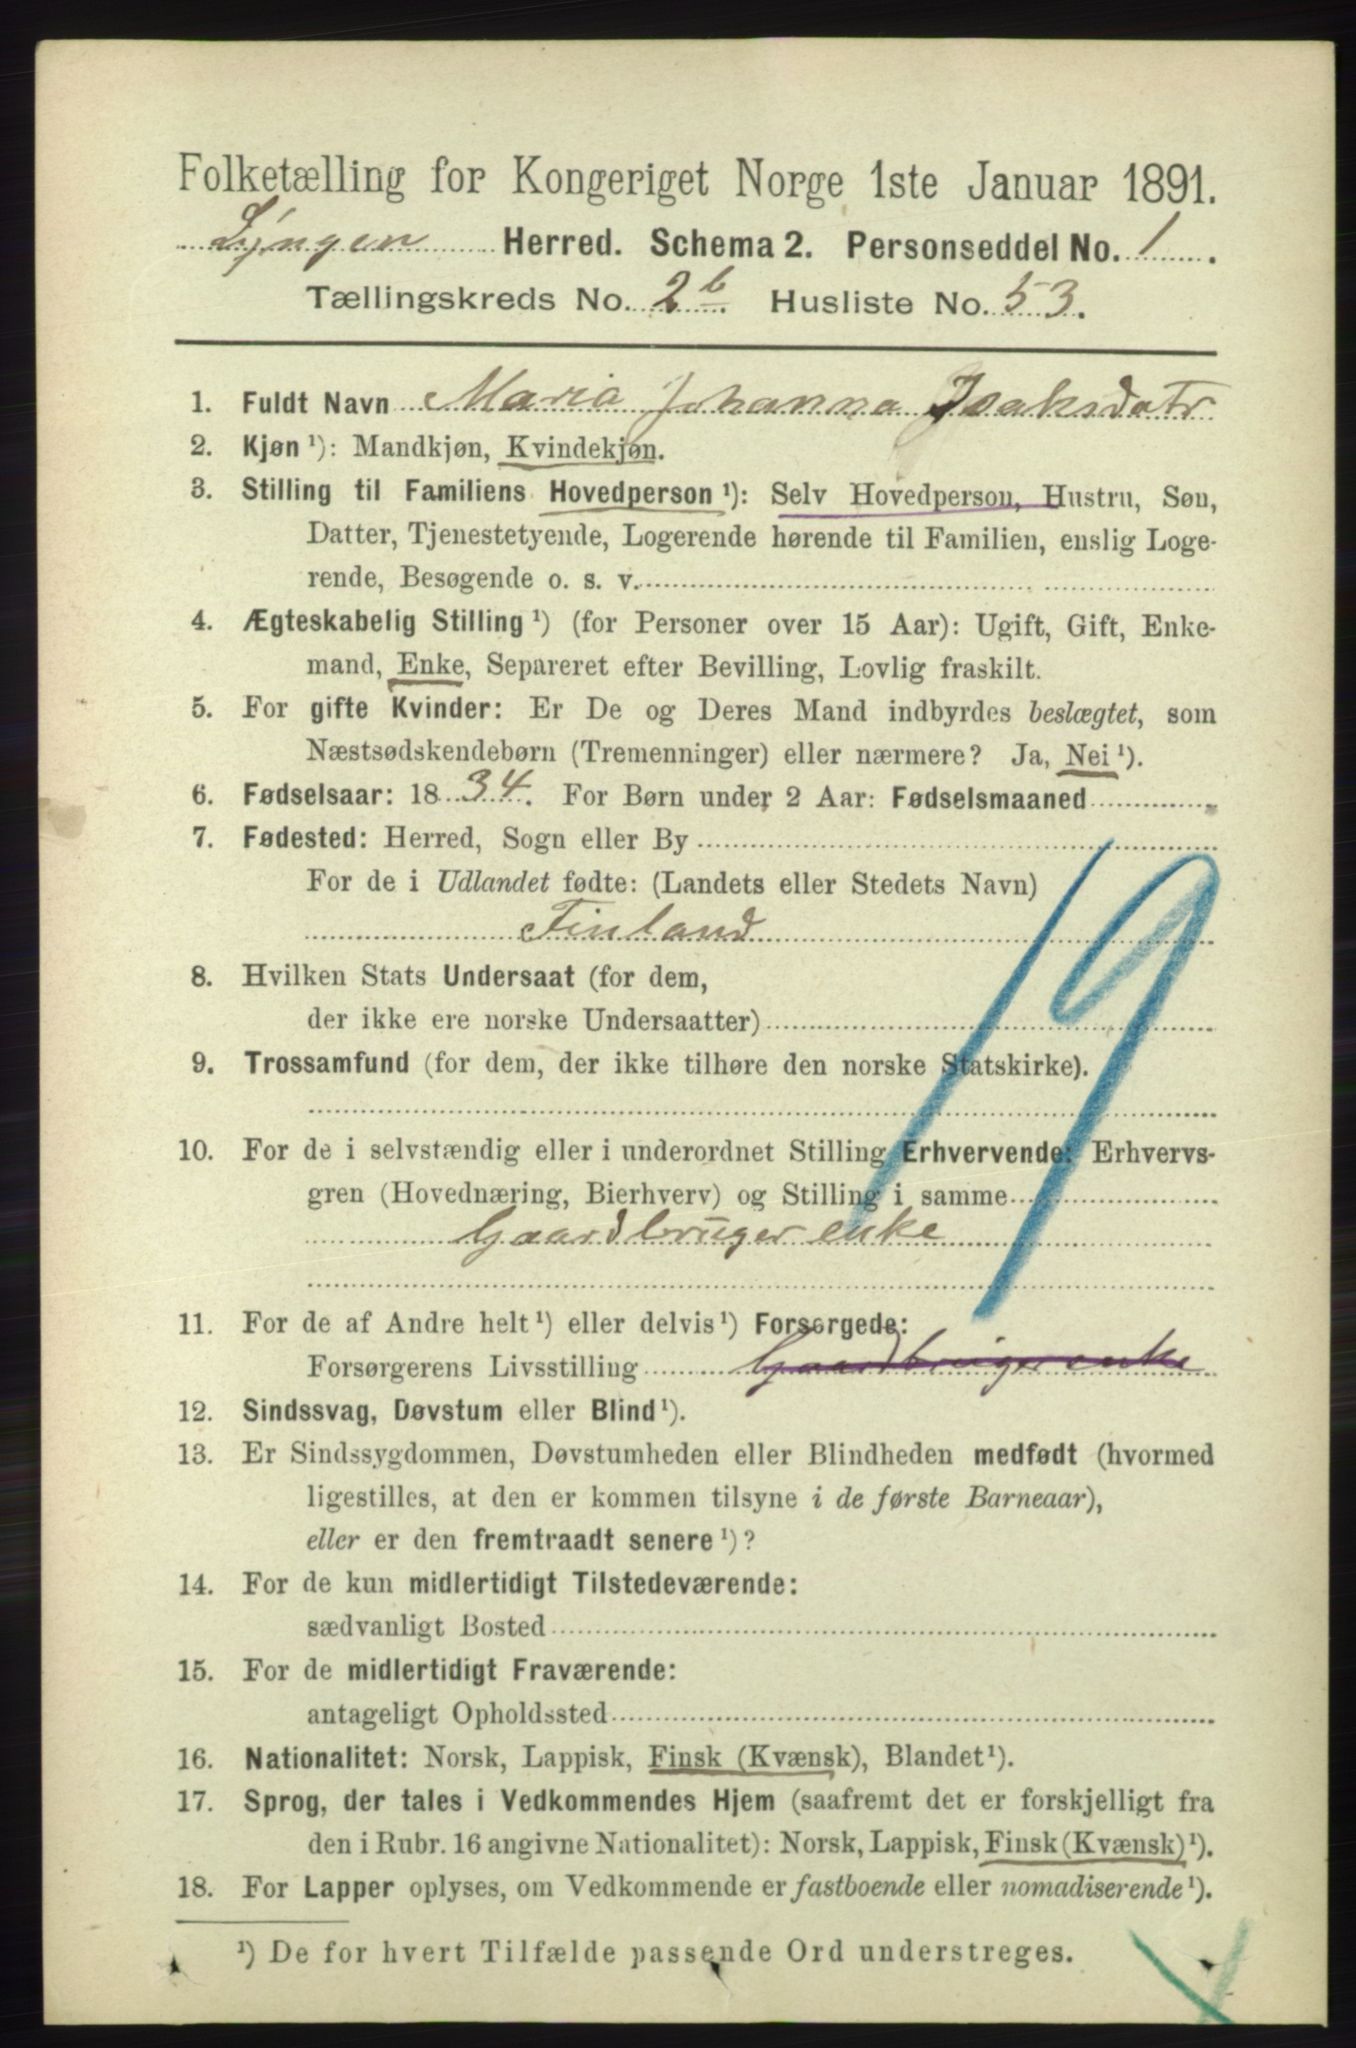 Folketælling for Kongeriget Norge 1ste Januar 1891.
Lyngen Herred. Schema 2. Personseddel No. 1.
Tællingskreds No. 2b. Husliste No. 53.
1. Fuldt Navn Maria Johanna Isaksdatr
2. Kjøn ¹): Mandkjøn, Kvindekjøn.
3. Stilling til Familiens Hovedperson ¹): Selv Hovedperson, Hustru, Søn,
Datter, Tjenestetyende, Logerende hørende til Familien, enslig Loge-
rende, Besøgende o. s. v.
4. Ægteskabelig Stilling ¹) (for Personer over 15 Aar): Ugift, Gift, Enke-
mand, Enke, Separeret efter Bevilling, Lovlig fraskilt.
5. For gifte Kvinder: Er De og Deres Mand indbyrdes beslægtet, som
Næstsødskendebørn (Tremenninger) eller nærmere? Ja, Nei ¹).
6. Fødselsaar: 1834. For Børn under 2 Aar: Fødselsmaaned
7. Fødested: Herred, Sogn eller By
For de i Udlandet fødte: (Landets eller Stedets Navn)
Finland
8. Hvilken Stats Undersaat (for dem,
der ikke ere norske Undersaatter)
9. Trossamfund (for dem, der ikke tilhøre den norske Statskirke).
19
10. For de i selvstændig eller i underordnet Stilling Erhvervende: Erhvervs-
gren (Hovednæring, Bierhverv) og Stilling i samme
Gaardbruger enke
11. For de af Andre helt ¹) eller delvis ¹) Forsørgede:
Forsørgerens Livsstilling Gaardbruger enke
12. Sindssvag, Døvstum eller Blind ¹).
13. Er Sindssygdommen, Døvstumheden eller Blindheden medfødt (hvormed
ligestilles, at den er kommen tilsyne i de første Barneaar),
eller er den fremtraadt senere ¹)?
14. For de kun midlertidigt Tilstedeværende:
sædvanligt Bosted
15. For de midlertidigt Fraværende:
antageligt Opholdssted
16. Nationalitet: Norsk, Lappisk, Finsk (Kvænsk), Blandet ¹).
17. Sprog, der tales i Vedkommendes Hjem (saafremt det er forskjelligt fra
den i Rubr. 16 angivne Nationalitet): Norsk, Lappisk, Finsk (Kvænsk) ¹).
18. For Lapper oplyses, om Vedkommende er fastboende eller nomadiserende ¹).
¹) De for hvert Tilfælde passende Ord understreges.